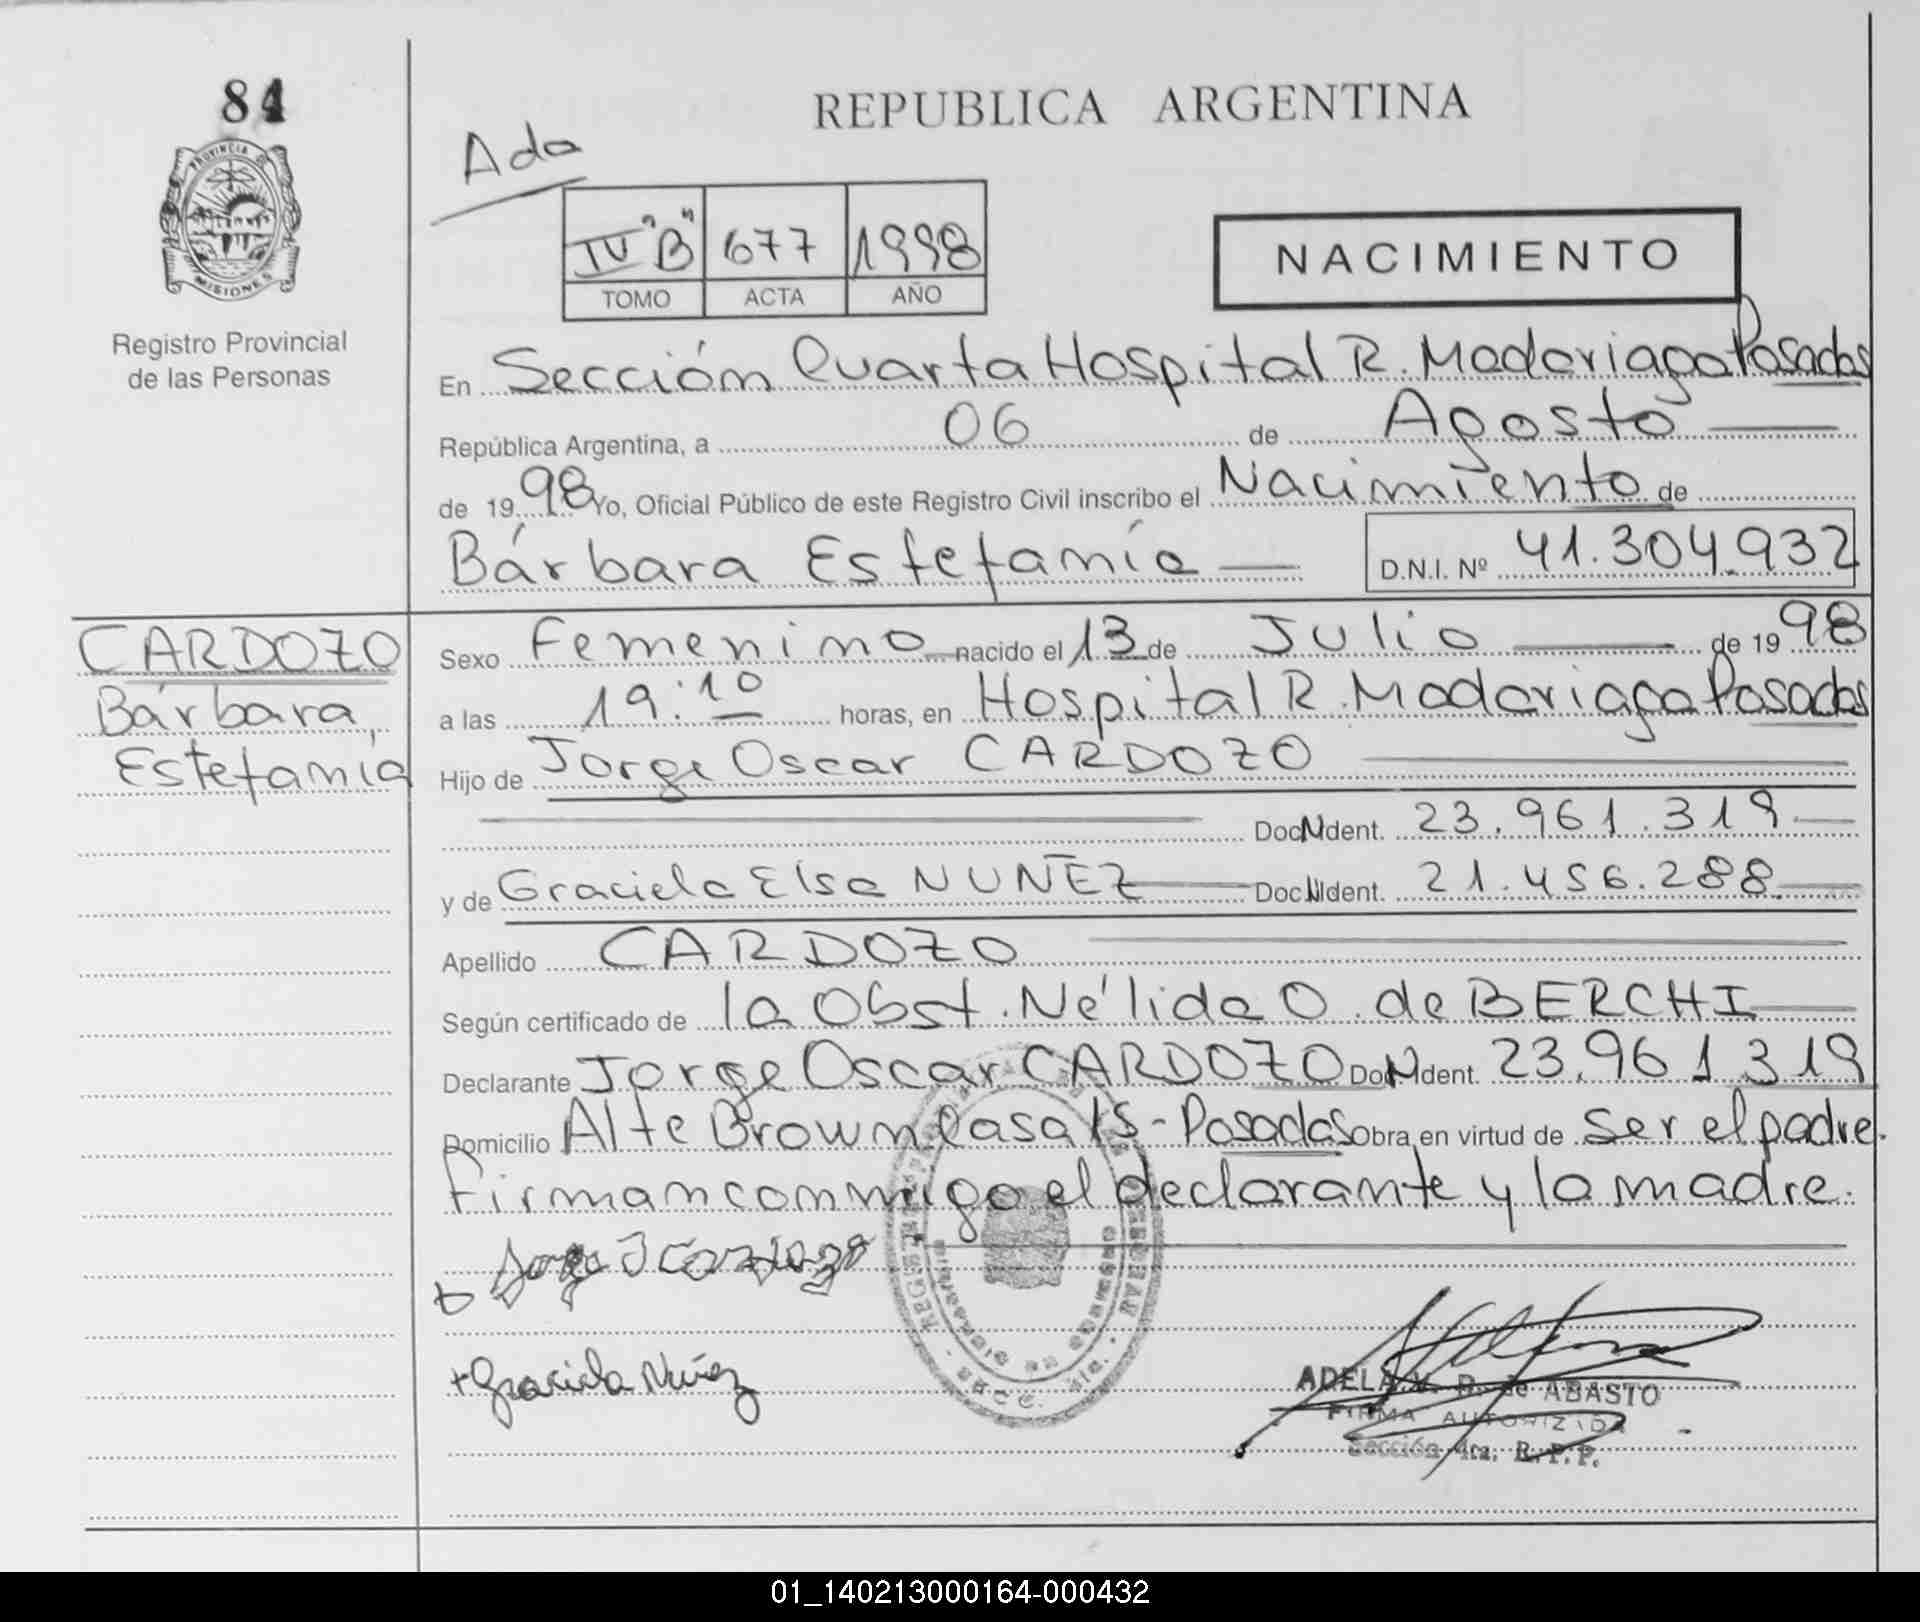 84
REPUBLICA ARGENTINA
Ada
PROVINCIA DE
MISIONES
IV "B" 677 1998
TOMO ACTA AÑO
NACIMIENTO
Registro Provincial
de las Personas
En Sección Cuarta Hospital R. Madariaga Posadas
República Argentina, a 06 de Agosto
de 1998 Yo, Oficial Público de este Registro Civil inscribo el Nacimiento de
Bárbara Estefanía D.N.I. Nº 41.304.932
CARDOZO
Bárbara
Estefanía
Sexo Femenino nacido el 13 de Julio de 1998
a las 19:10 horas, en Hospital R. Madariaga Posadas
Hijo de Jorge Oscar CARDOZO
Doc. Ident. 23.961.319
y de Graciela Elsa NUÑEZ Doc. Ident. 21.456.288
Apellido CARDOZO
Según certificado de la Obst. Nélida O. de BERCHI
Declarante Jorge Oscar CARDOZO Doc. Ident. 23.961.319
Domicilio Alte Brown Casa 15 - Posadas Obra en virtud de ser el padre.
Firman conmigo el declarante y la madre.
+ Graciela Núñez
ADELA V. B. de ABASTO
FIRMA AUTORIZADA
Sección 4ta. R. P. P.
01_140213000164-000432